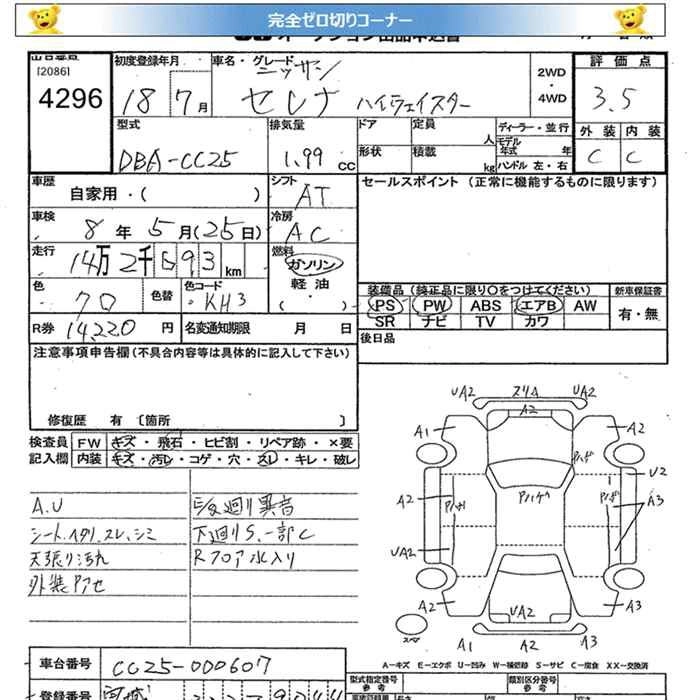 完全ゼロ切りコーナー
[2086]
4296
初度登録年月
18 7月
車名・グレード
ニッサン
セレナ ハイウェイスター
2WD
・
4WD
評価点
3.5
外装 内装
C C
型式
DBA-CC25
排気量
1.99 CC
ドア 定員 人
形状 積載 kg
ディーラー・並行
モデル年式 年
ハンドル 左・右
車歴
自家用・( )
シフト
AT
セールスポイント (正常に機能するものに限ります)
車検
8年 5月(25日)
冷房
AC
走行
14万2千693km
燃料
ガソリン
・
軽油
・
( )
色
クロ
色替
色コード
KH3
装備品(純正品に限り○をつけてください)
新車保証書
PS PW ABS エアB AW
有・無
SR ナビ TV カワ
R券 14,220円
名変通知期限 月 日
後日品
注意事項申告欄(不具合内容等は具体的に記入して下さい)
修復歴 有 〔箇所 〕
検査員 FW キズ・飛石・ヒビ割・リペア跡・×要
記入欄 内装 キズ・汚レ・コゲ・穴・スレ・キレ・破レ
A.U
シートヘタリ、スレ、シミ
天張り汚れ
外装アセ
廻り異音
下廻りS.一部C
Rフロア水入り
UA2 スリム UA2
A2
A1 A2
Pハゲ
U2
A2 Pハゲ
A3
UA2
A2 UA2 A3
スペア
A1 A2 A3
A-キズ E-エクボ U-凹み W-補修跡 S-サビ C-腐食 XX-交換済
車台番号 CC25-000607
型式指定番号
参考
類別区分番号
参考
登録番号